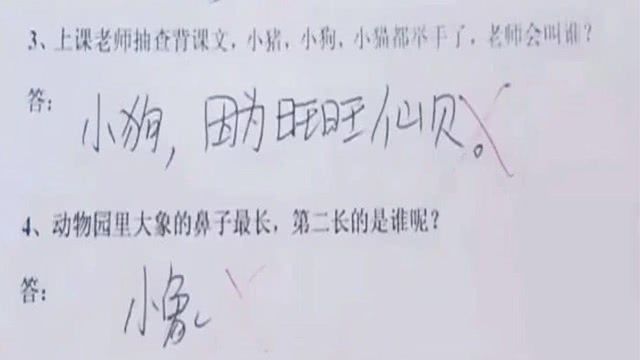 3、上课老师抽查背课文，小猪，小狗，小猫都举手了，老师会叫谁？
答：
小狗，因为旺旺仙贝。
4、动物园里大象的鼻子最长，第二长的是谁呢？
答：
小象